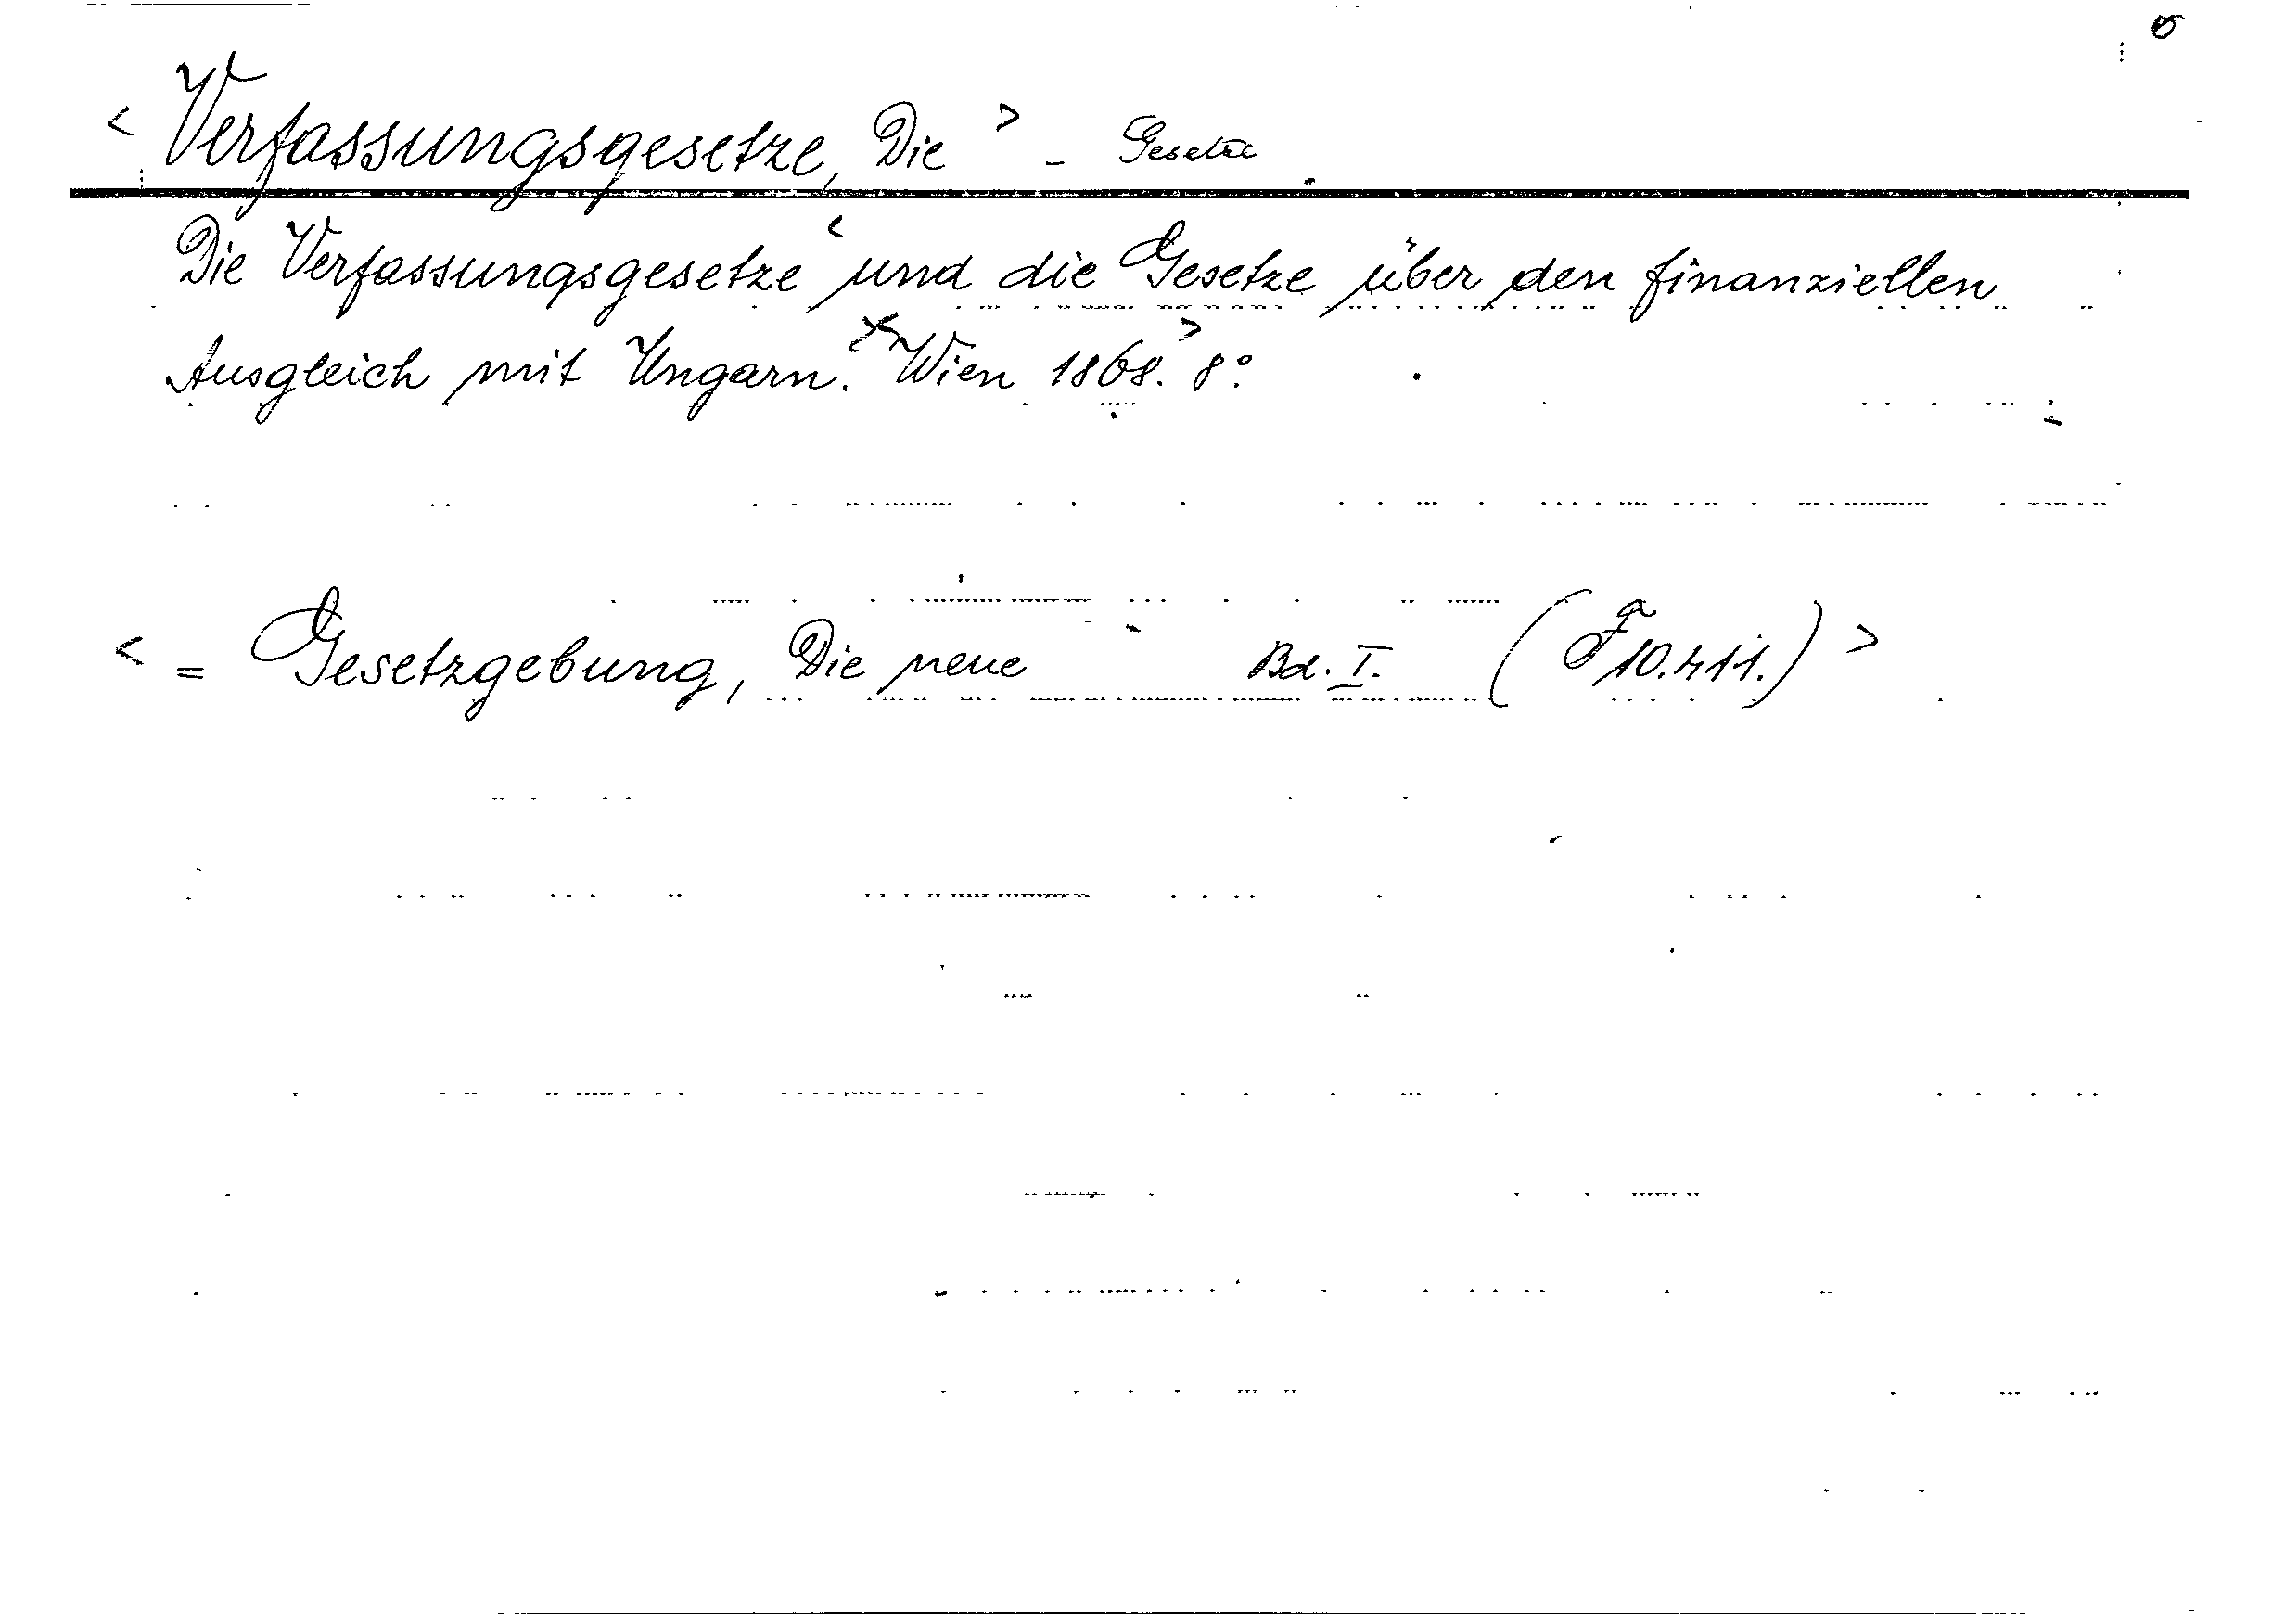 < Verfassungsgesetze, Die > - Gesetze
Die Verfassungsgesetze < und die Gesetze über den finanziellen
Ausgleich mit Ungarn. > < Wien 1868. > 8º.
< = Gesetzgebung, Die neue Bd. I. (F 10.411.) >